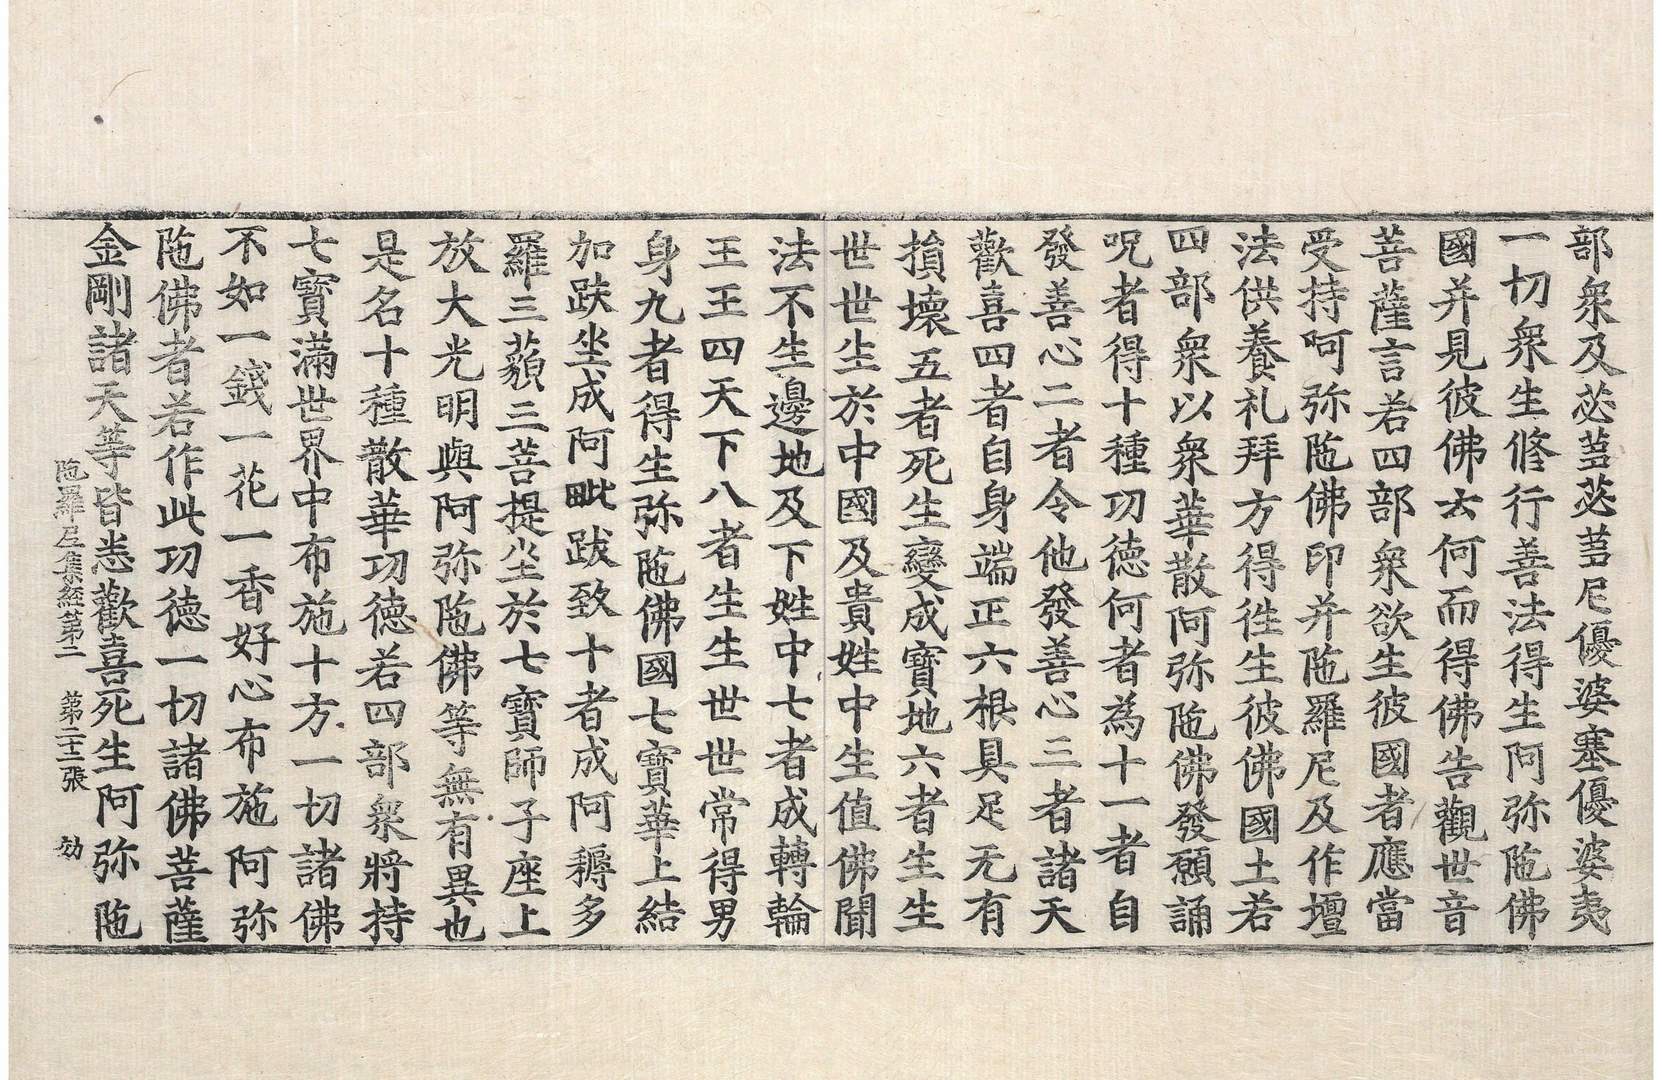 部衆及苾蒭苾蒭尼優婆塞優婆夷
一切衆生修行善法得生阿弥陁佛
國并見彼佛云何而得佛告觀世音
菩薩言若四部衆欲生彼國者應當
受持阿弥陁佛印并陁羅尼及作壇
法供養礼拜方得徃生彼佛國土若
四部衆以衆華散阿弥陁佛發願誦
呪者得十種功德何者為十一者自
發善心二者令他發善心三者諸天
歡喜四者自身端正六根具足无有
損壞五者死生變成寶地六者生生
世世生於中國及貴姓中生值佛聞
法不生邊地及下姓中七者成轉輪
王王四天下八者生生世世常得男
身九者得生弥陁佛國七寶華上結
加趺坐成阿毗跋致十者成阿耨多
羅三藐三菩提坐於七寶師子座上
放大光明與阿弥陁佛等無有異也
是名十種散華功德若四部衆將持
七寶滿世界中布施十方一切諸佛
不如一錢一花一香好心布施阿弥
陁佛者若作此功德一切諸佛菩薩
金剛諸天等皆悉歡喜死生阿弥陁
陁羅尼集經第二 第二十二張 幼